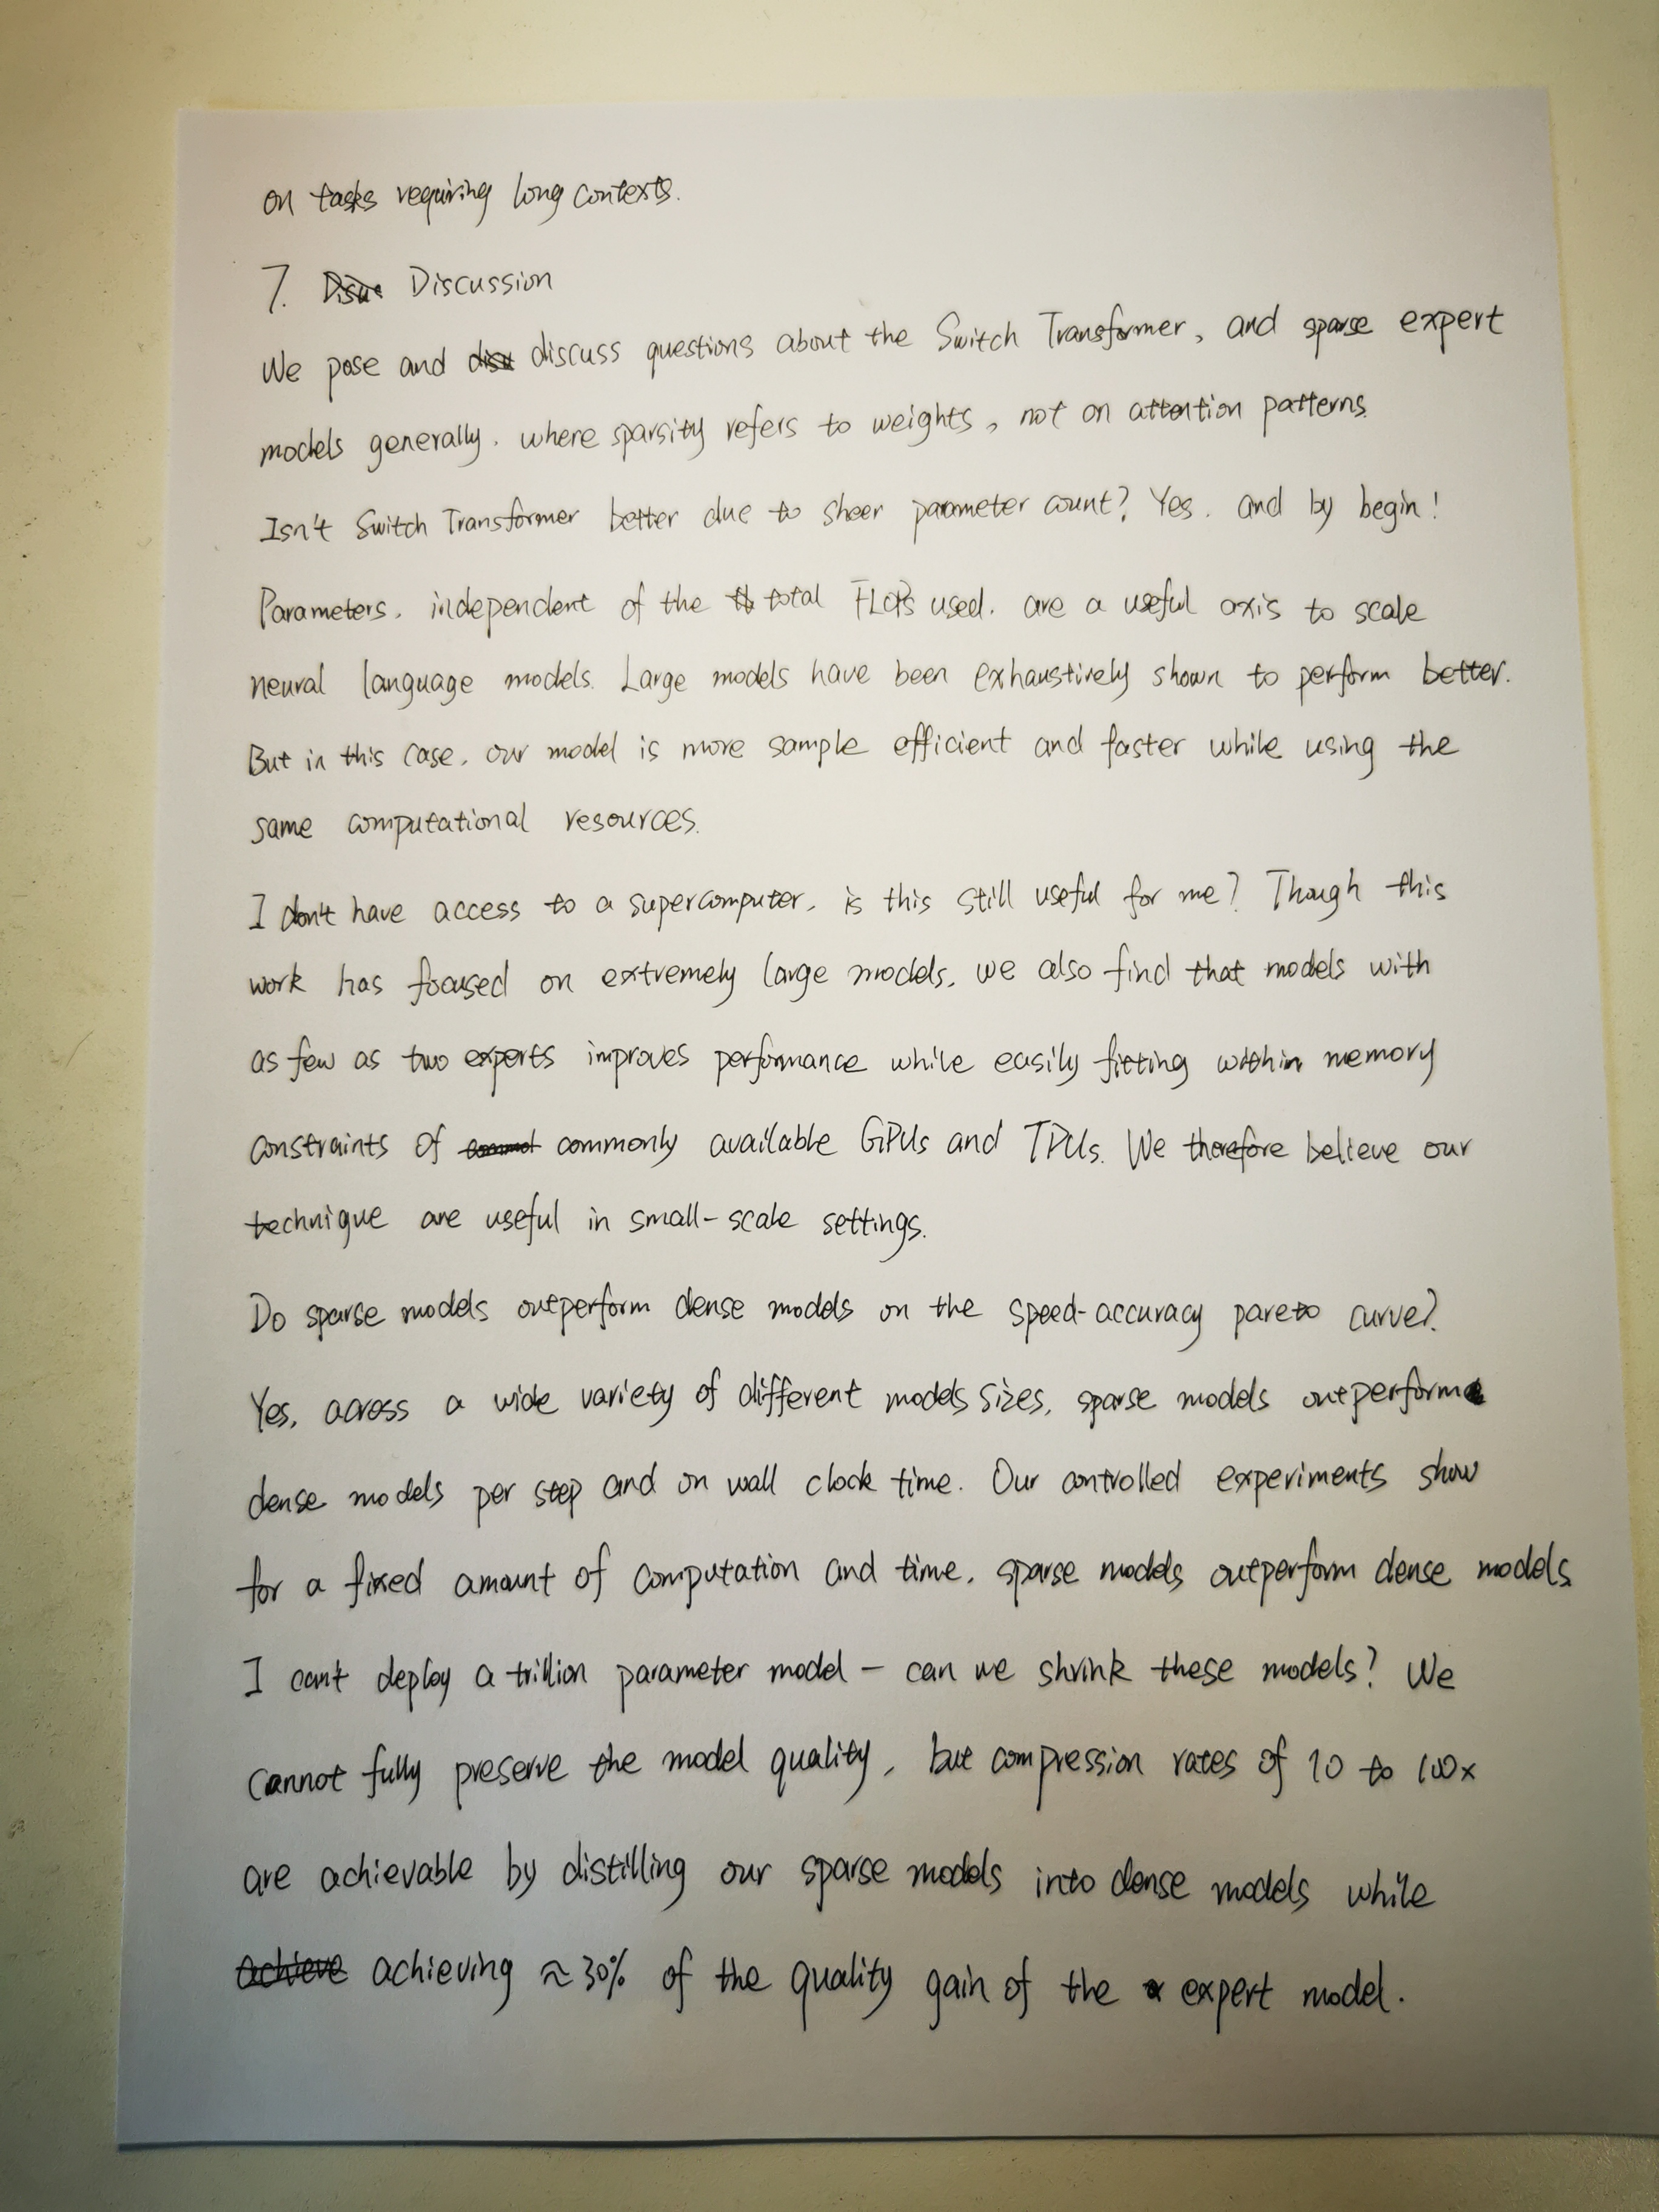 on tasks requiring long contexts.
7. Discussion
We pose and discuss questions about the Switch Transformer, and sparse expert
models generally. where sparsity refers to weights, not on attention patterns.
Isn't Switch Transformer better due to sheer parameter count? Yes. and by begin!
Parameters, independent of the total FLOPs used. are a useful axis to scale
neural language models. Large models have been exhaustively shown to perform better.
But in this case, our model is more sample efficient and faster while using the
same computational resources.
I don't have access to a supercomputer, is this still useful for me? Though this
work has focused on extremely large models, we also find that models with
as few as two experts improves performance while easily fitting within memory
constraints of commonly available GPUs and TPUs. We therefore believe our
technique are useful in small-scale settings.
Do sparse models outperform dense models on the speed-accuracy pareto curve?
Yes, across a wide variety of different models sizes, sparse models outperform
dense models per step and on wall clock time. Our controlled experiments show
for a fixed amount of computation and time, sparse models outperform dense models.
I can't deploy a trillion parameter model – can we shrink these models? We
cannot fully preserve the model quality, but compression rates of 10 to 100x
are achievable by distilling our sparse models into dense models while
achieving ≈30% of the quality gain of the expert model.